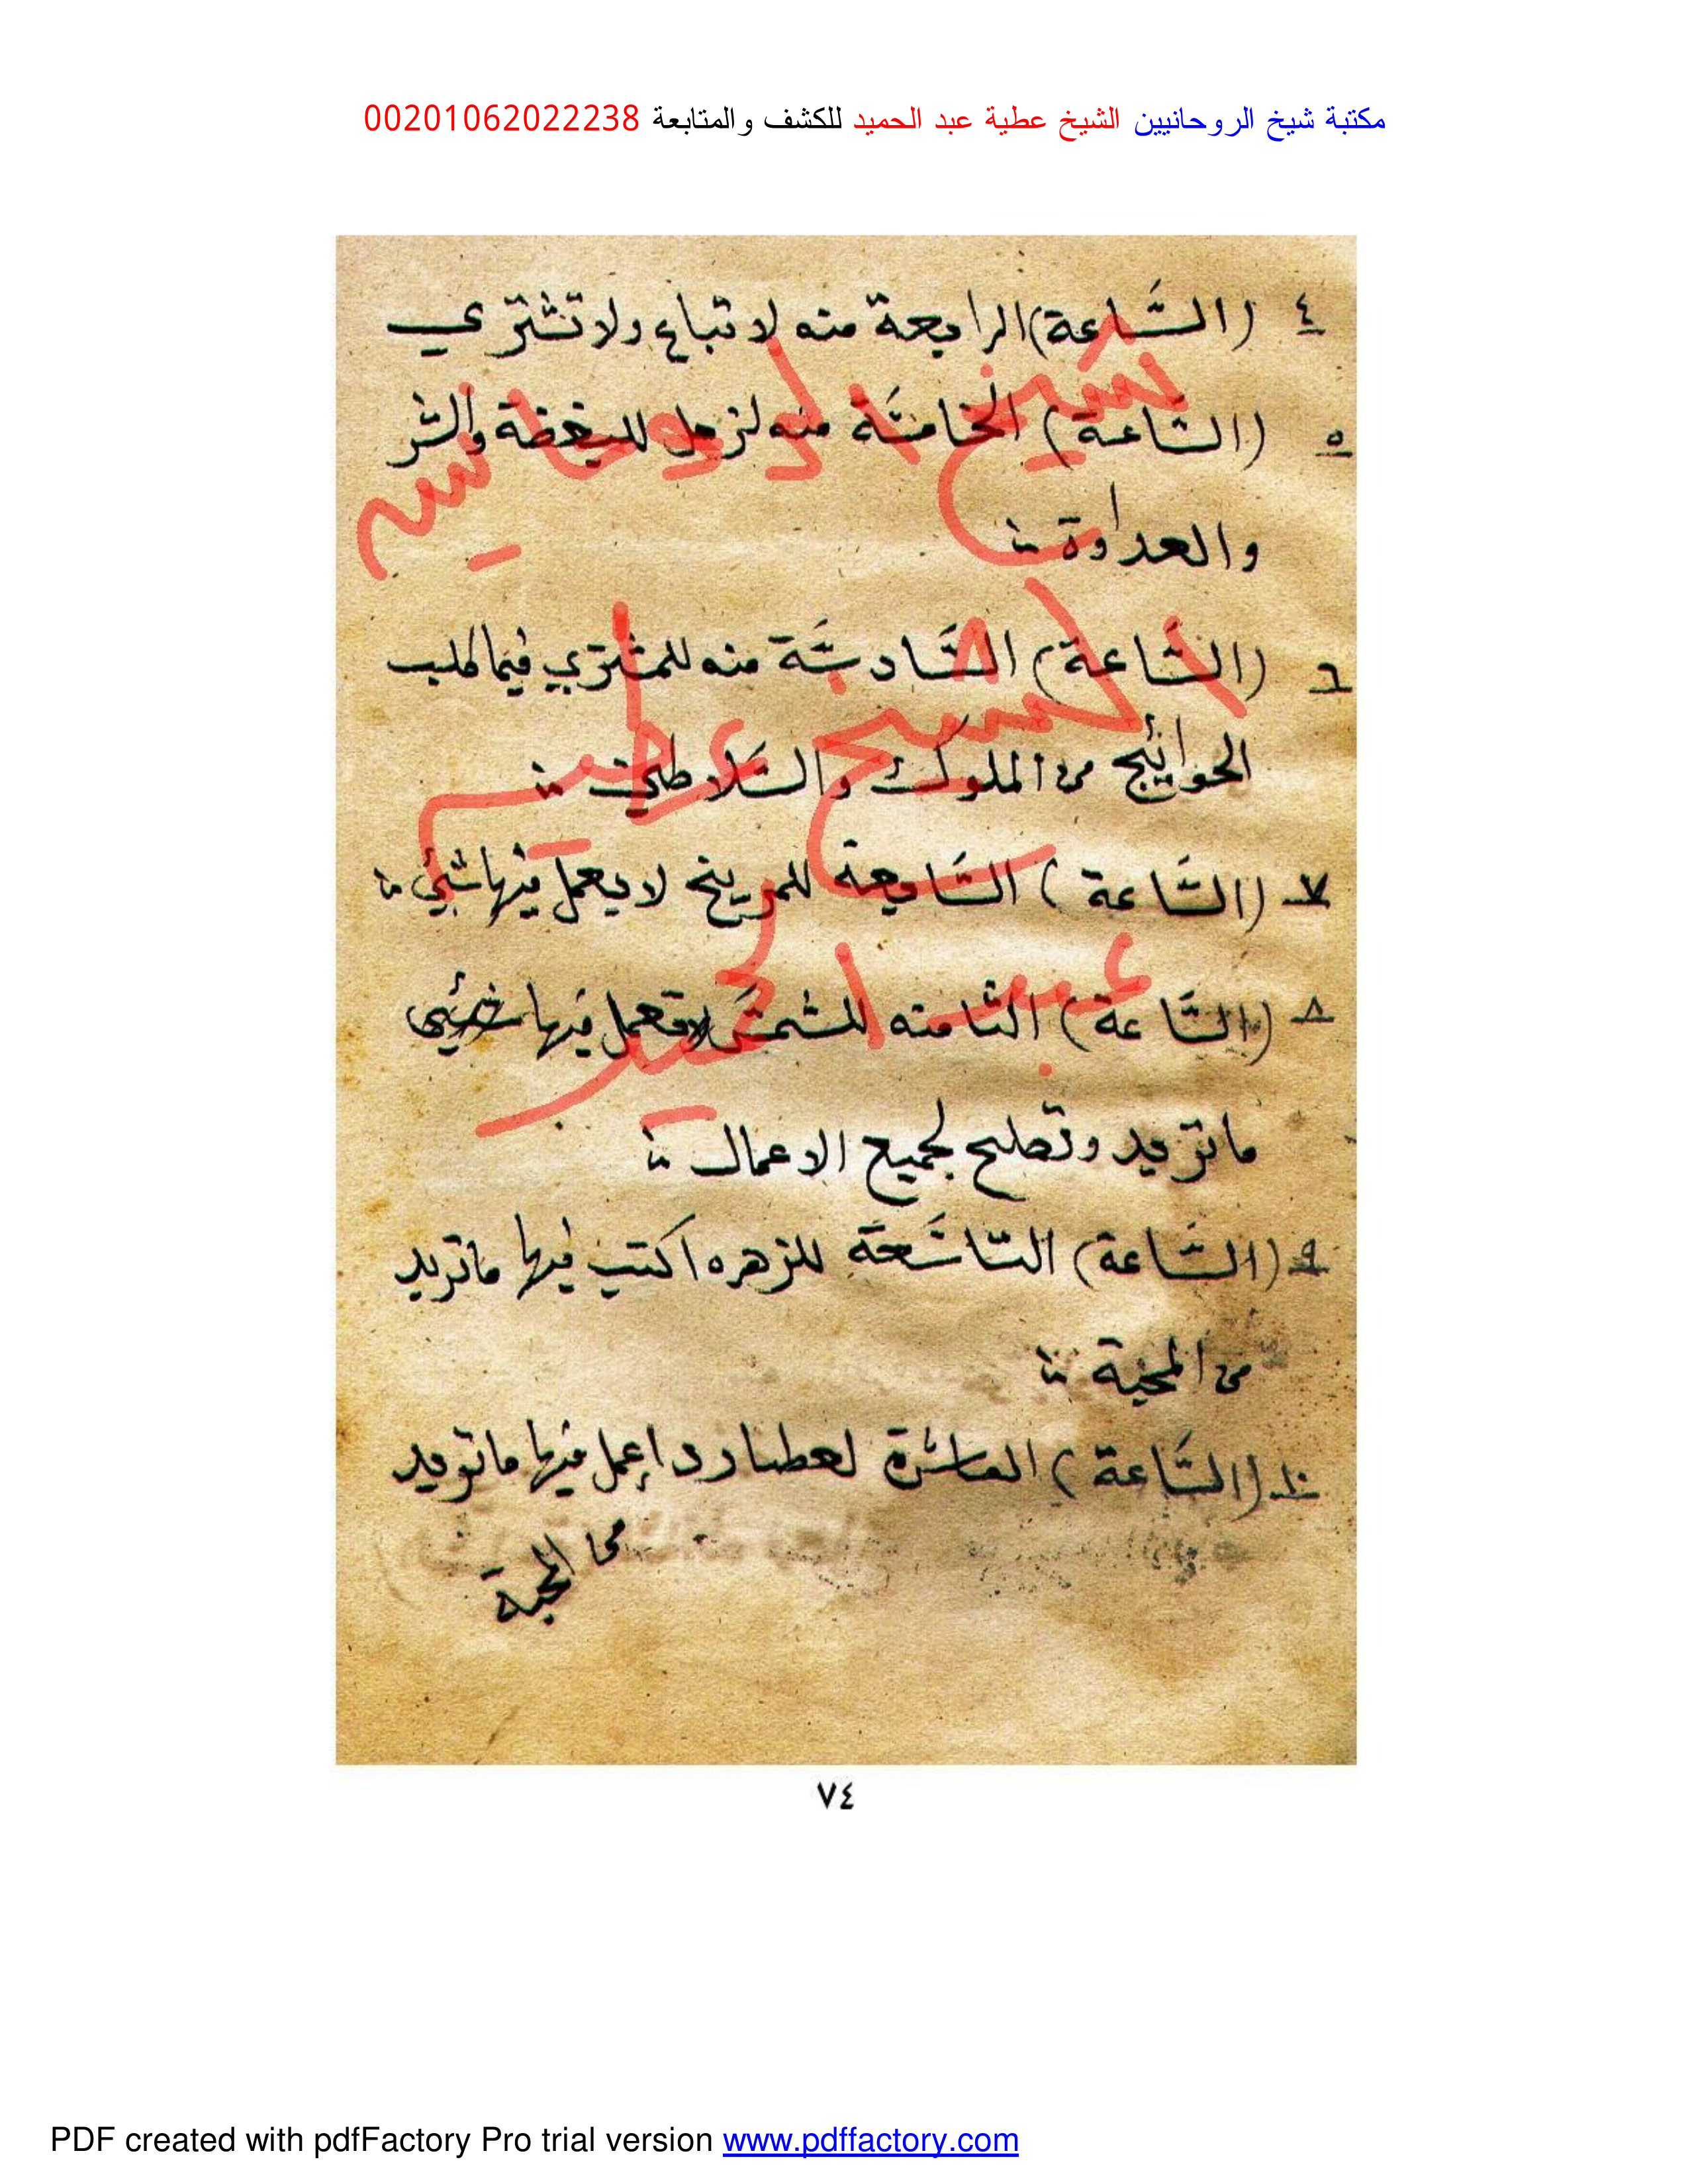 مكتبة شيخ الروحانيين الشيخ عطية عبد الحميد للكشف والمتابعة 00201062022238
٤ (السَّاعة) الرابعة منه لا تباع ولا تشتري
٥ (الساعة) الخامسَة منه لزحل للبغضة والشر
والعداوة
٦ (السَّاعة) السَّادسَة منه للمشتري فيما طلب
الحوائج من الملوك والسَلاطين
٧ (السَّاعة) السَّابعة للمريخ لا يعمل فيها شيئ
٨ (السَّاعة) الثامنه للشمسَ لا تعمل فيها شيئ
ما تريد وتصلح لجميع الاعمال
٩ (السَّاعة) التاسَعة للزهره اكتب فيها ما تريد
من المحبة
١٠ (السَّاعة) العاشرة لعطارد إعمل فيها ما تريد
من المحبة
شيخ الروحانيين
الشيخ عطيه
عبد الحميد
٧٤
PDF created with pdfFactory Pro trial version www.pdffactory.com